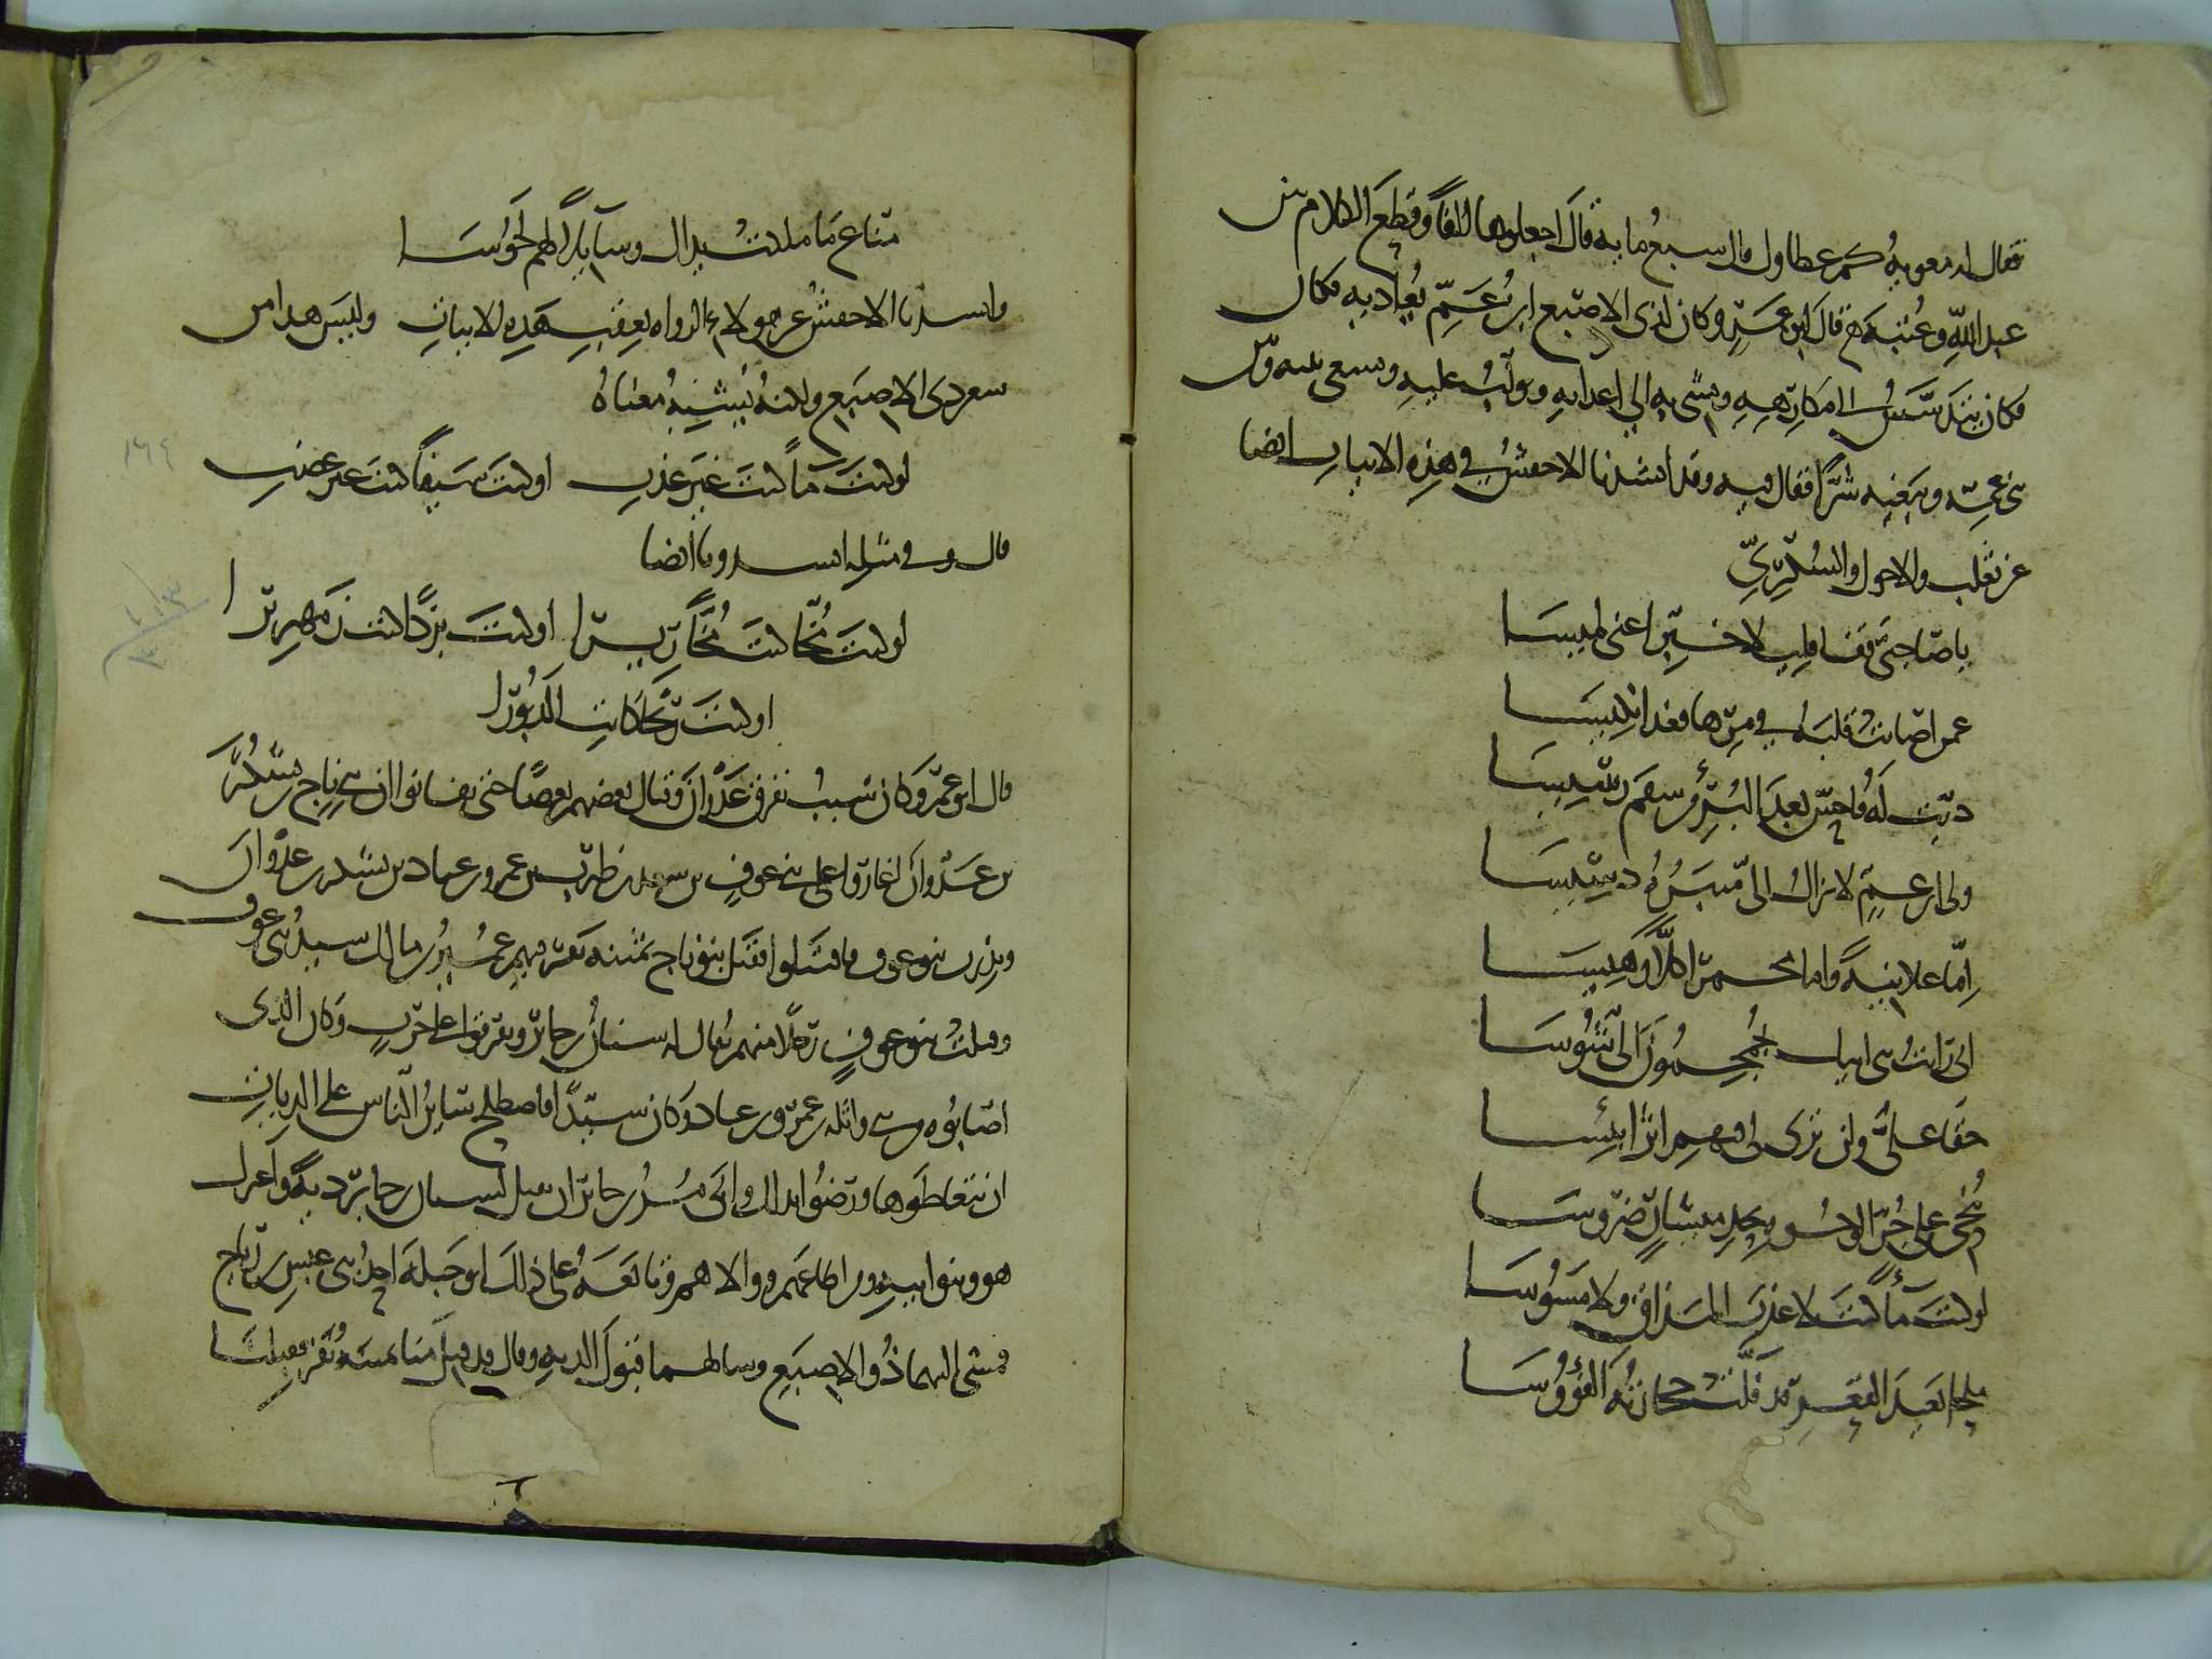 فقال له معوية كم عطاول قال سبع ماية قال اجعلوها الفا وقطع الكلام بين
عبد الله وعتبة قال ابو عمرو وكان لذى الاصبع ابن عم يعاديه فكان
فكان يتدسس الى مكارهه ويمشى به الى اعدايه ويولب عليه ويسعى بينه وبين
بنى عمه ويبغيه شرا فقال فيه وقد انشدنا الاخفش فى هذه الابيات ايضا
عن ثعلب والاحول والسكرى
يا صاحبى قفا قليلا خبرا عنى لميسا
عمن اصابت قلبه فى مرها فغدا نكيسا
ولى ابن عم لا يزال الى منكره دسيسا
اما علانية واما مخمرا اكلا وهيسا
انى رايت بنى ابيك يحمجمون الى شوسا
حنقا على ولن ترى لى فيهم اثرا بئيسا
لو كنت مأ كنت لا عذب المذاق ولا مسوسا
ملحا بعيد القعر قد فلت حجارته الفؤوسا
مناع ما ملكت يداك وسايلا لهم لحوسا
وانشدنا الاخفش عن هولاء الرواه بعقب هذه الابيات وليس هذا من
شعر ذى الاصبع ولكنه يشبه معناه
لو كنت ما كنت غير عذب او كنت سيفا كنت غير عضب
قال وفى مثله انشدونا ايضا
لو كنت مخا كنت مخا ريرا او كنت بردا كنت زمهريرا
او كنت ريحا كانت الدبورا
قال ابو عمرو وكان سبب تفرق عدوان وقتال بعضهم بعضا حتى تفانوا ان بنى ناج بن يشكر
بن عدوان اغاروا على بنى عوف بن سعد بن ظرب بن عمرو بن عباد بن يشكر بن عدوان
ونذرت بنو عوف فاقتتلوا فقتل بنو ناج ثمنية نفر فيهم عمير بن مالك سيد بنى عوف
وقتلت بنو عوف رجلا منهم يقال له سنان بن جابر وتفرقوا على حرب وكان الذى
اصابوه من بنى واثلة بن عمرو بن عباد وكان سيدا فاصطلح ساير الناس على الديات
ان يتعاطوها ورضوا بذلك وابى مرير بن جابر ان يقبل بسنان بن جابر دية واعتزل
هو وبنو ابيه ومن اطاعهم ووالاهم وتابعه على ذلك ابو جبلة احد بنى عبس بن ناج
فمشى اليهما ذو الاصبع وسالهما قبول الدية وقال قد قتل منا ثمنية نفر فقبلنا
١٦٤